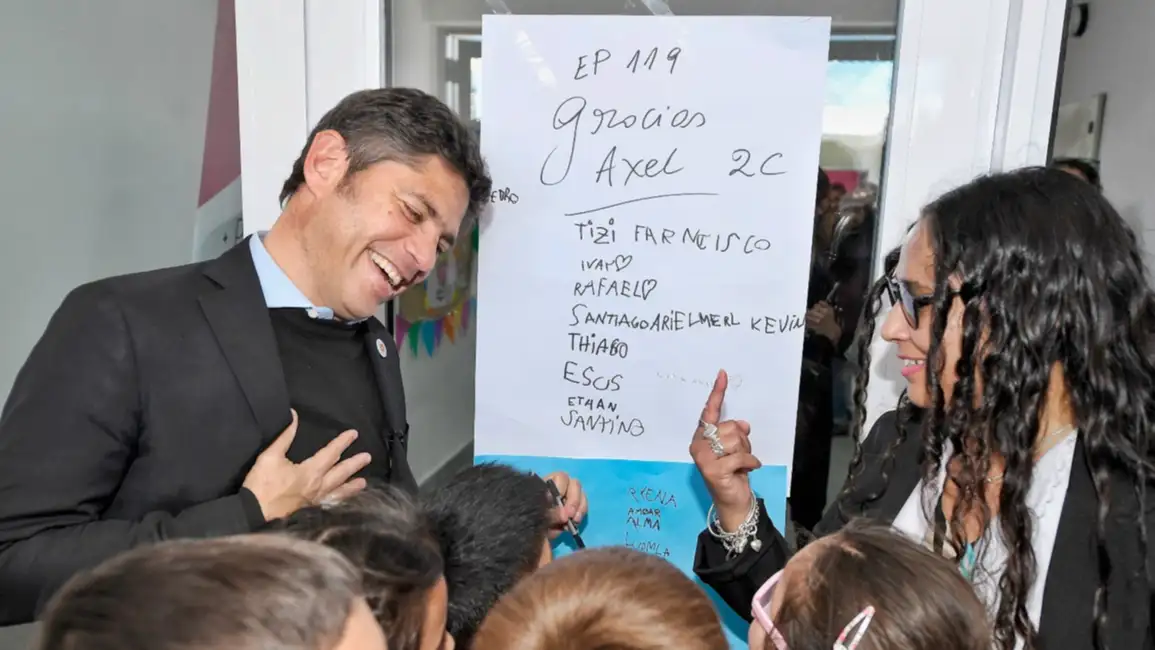 EP 119
Grocios
Axel 2C
EDRO
TIZI FARNCISCO
IVAN
RAFAEL
SANTIAGO ARIEL MERL KEVIN
THIAGO
ESOS
ETHAN
SANTINO
RYENA
AMBAR
ALMA